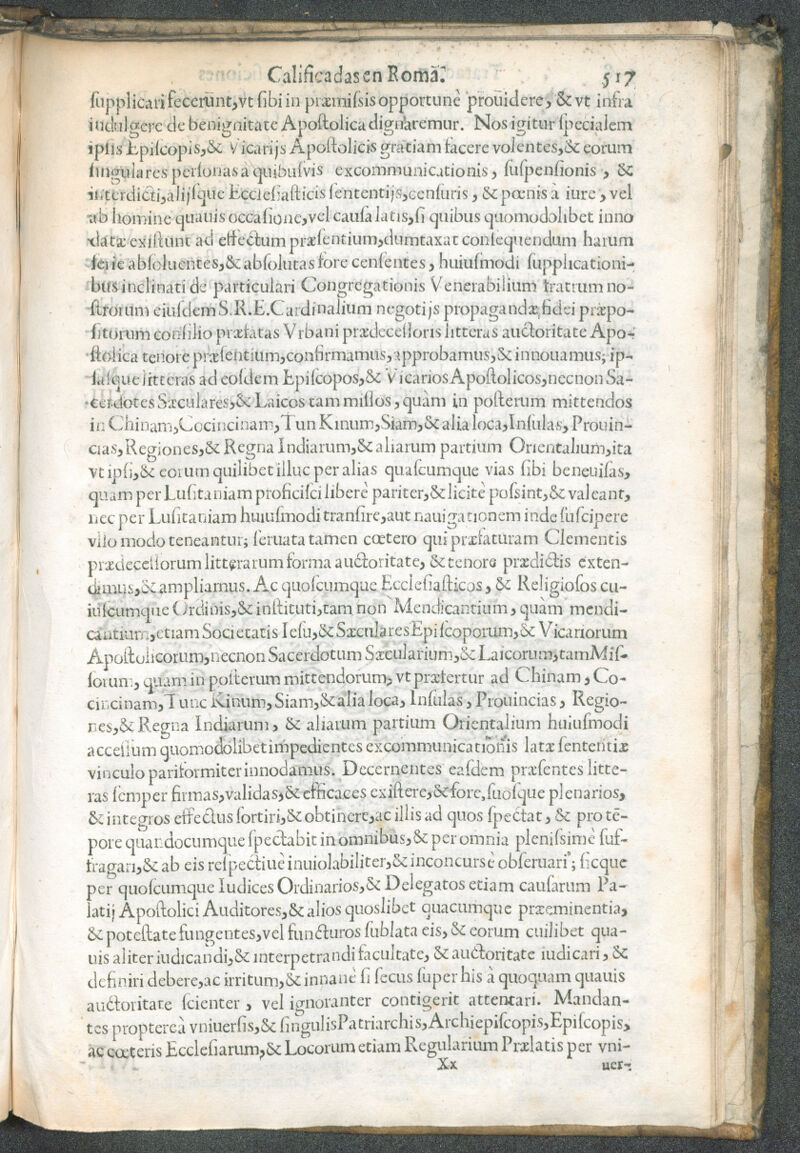 Calificadas en Romã. 517
ſupplicari fecerunt, vt ſibi in præmiſsis opportunè prouidere, & vt infra
indulgere de benignitate Apoſtolica dignaremur. Nos igitur ſpecialem
ipſis Epiſcopis, & Vicarijs Apoſtolicis gratiam facere volentes, & eorum
ſingulares perſonas à quibuſvis excommunicationis, ſuſpenſionis, &
interdicti, alijſque Eccleſiaſticis ſententijs, cenſuris, & pœnis à iure, vel
ab homine quauis occaſione, vel cauſa latis, ſi quibus quomodolibet inno
datæ exiſtunt ad effectum præſentium, dumtaxat conſequendum harum
ſerie abſoluentes, & abſolutas fore cenſentes, huiuſmodi ſupplicationi-
bus inclinati de particulari Congregationis Venerabilium fratrum no-
ſtrorum eiuſdem S.R.E. Cardinalium negotijs propagandæ fidei præpo-
ſitorum conſilio præfatas Vrbani prædeceſſoris litteras auctoritate Apo-
ſtolica tenore præſentium, confirmamus, approbamus, & innouamus; ip-
ſaſque litteras ad eoſdem Epiſcopos, & Vicarios Apoſtolicos, necnon Sa-
cerdotes Sæculares, & Laicos tam miſſos, quàm in poſterum mittendos
in Chinam, Cocincinam, Tun Kinum, Siam, & alia loca, Inſulas, Prouin-
cias, Regiones, & Regna Indiarum, & aliarum partium Orientalium, ita
vt ipſi, & eorum quilibet illuc per alias quaſcumque vias ſibi beneuiſas,
quam per Luſitaniam proficiſci liberè pariter, & licitè poſsint, & valeant,
nec per Luſitaniam huiuſmodi tranſire, aut nauigationem inde ſuſcipere
vllo modo teneantur; ſeruata tamen cœtero qui præfaturam Clementis
prædeceſſorum litterarum forma auctoritate, & tenore prædictis exten-
dimus, & ampliamus. Ac quoſcumque Eccleſiaſticos, & Religioſos cu-
iuſcumque Ordinis, & inſtituti, tam non Mendicantium, quam mendi-
cantium, etiam Societatis Ieſu, & Sæculares Epiſcoporum, & Vicariorum
Apoſtolicorum, necnon Sacerdotum Sæcularium, & Laicorum, tam Miſ-
ſorum, quam in poſterum mittendorum, vt præfertur ad Chinam, Co-
cincinam, Tunc Kinum, Siam, & alia loca, Inſulas, Prouincias, Regio-
nes, & Regna Indiarum, & aliarum partium Orientalium huiuſmodi
acceſſum quomodolibet impedientes excommunicationis latæ ſententiæ
vinculo pariformiter innodamus. Decernentes eaſdem præſentes litte-
ras ſemper firmas, validas, & efficaces exiſtere, & fore, ſuoſque plenarios,
& integros effectus ſortiri, & obtinere, ac illis ad quos ſpectat, & pro tẽ-
pore quandocumque ſpectabit in omnibus, & per omnia pleniſsimè ſuf-
fragari, & ab eis reſpectiuè inuiolabiliter, & inconcursè obſeruari; ſicque
per quoſcumque Iudices Ordinarios, & Delegatos etiam cauſarum Pa-
latij Apoſtolici Auditores, & alios quoslibet quacumque præeminentia,
& poteſtate fungentes, vel functuros ſublata eis, & eorum cuilibet qua-
uis aliter iudicandi, & interpetrandi facultate, & auctoritate iudicari, &
definiri debere, ac irritum, & innanè ſi ſecus ſuper his à quoquam quauis
auctoritate ſcienter, vel ignoranter contigerit attentari. Mandan-
tes propterea vniuerſis, & ſingulis Patriarchis, Archiepiſcopis, Epiſcopis,
ac cœteris Eccleſiarum, & Locorum etiam Regularium Prælatis per vni-
Xx uer-